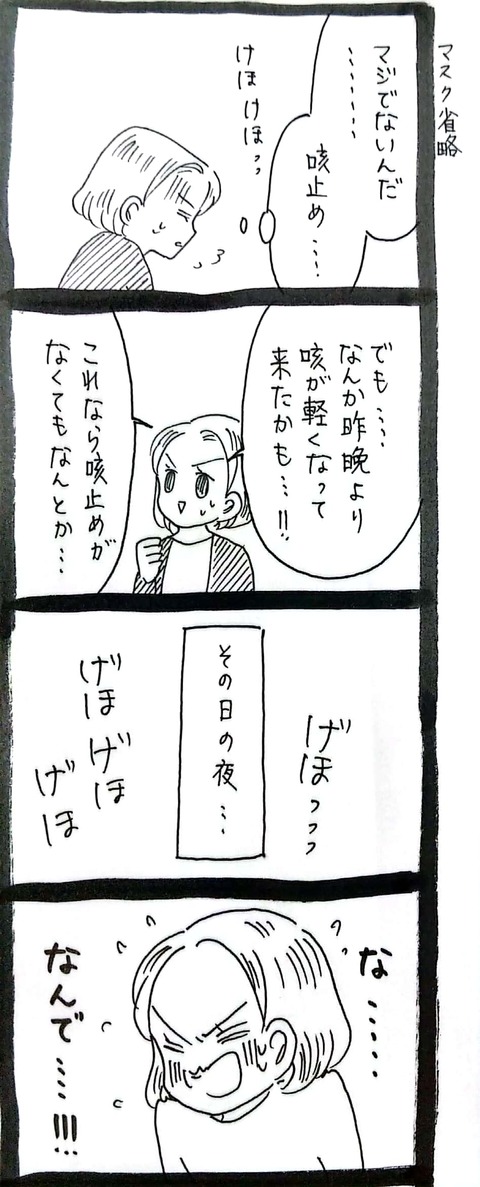 マスク省略
マジでないんだ
………
咳止め…
けほけほっっ
でも…
なんか昨晩より
咳が軽くなって
来たかも…!!
これなら咳止めが
なくてもなんとか…
げほっっっ
その日の夜…
げほ
げほ
げほ
な……
なんで……!!!